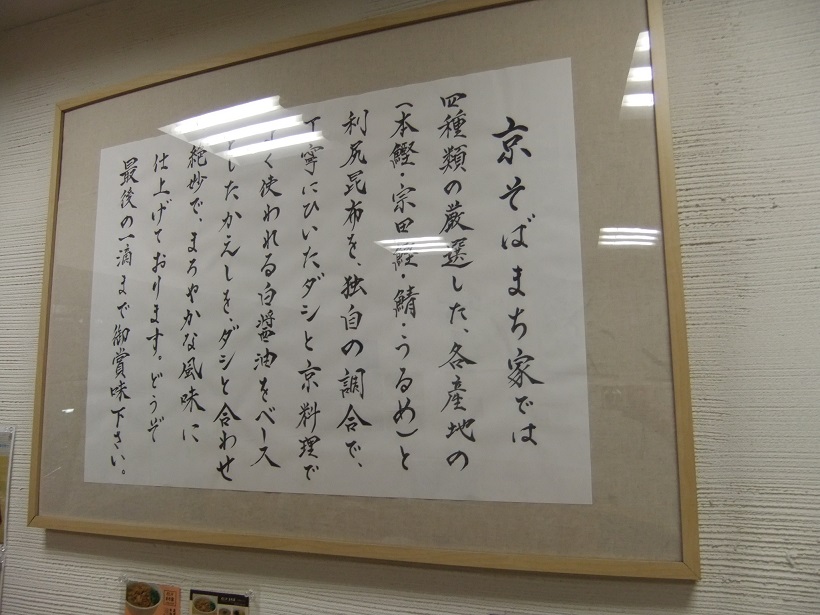 京そばまち家では
四種類の厳選した、各産地の
(本鰹・宗田鰹・鯖・うるめ)と
利尻昆布を、独自の調合で、
丁寧にひいたダシと京料理で
く使われる白醤油をベース
したかえしを、ダシと合わせ
絶妙で、まろやかな風味に
仕上げております。どうぞ
最後の一滴まで御賞味下さい。